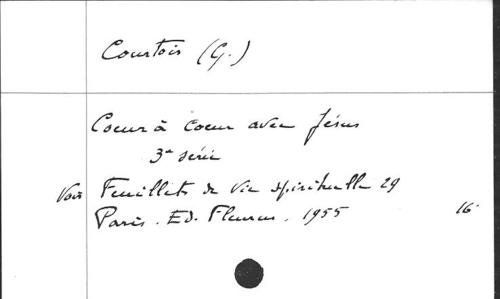 Courtois (G.)
Coeur à coeur avec Jésus
3e série
Voir Feuillets de vie spirituelle 29
Paris. Ed. Fleurus. 1955 16